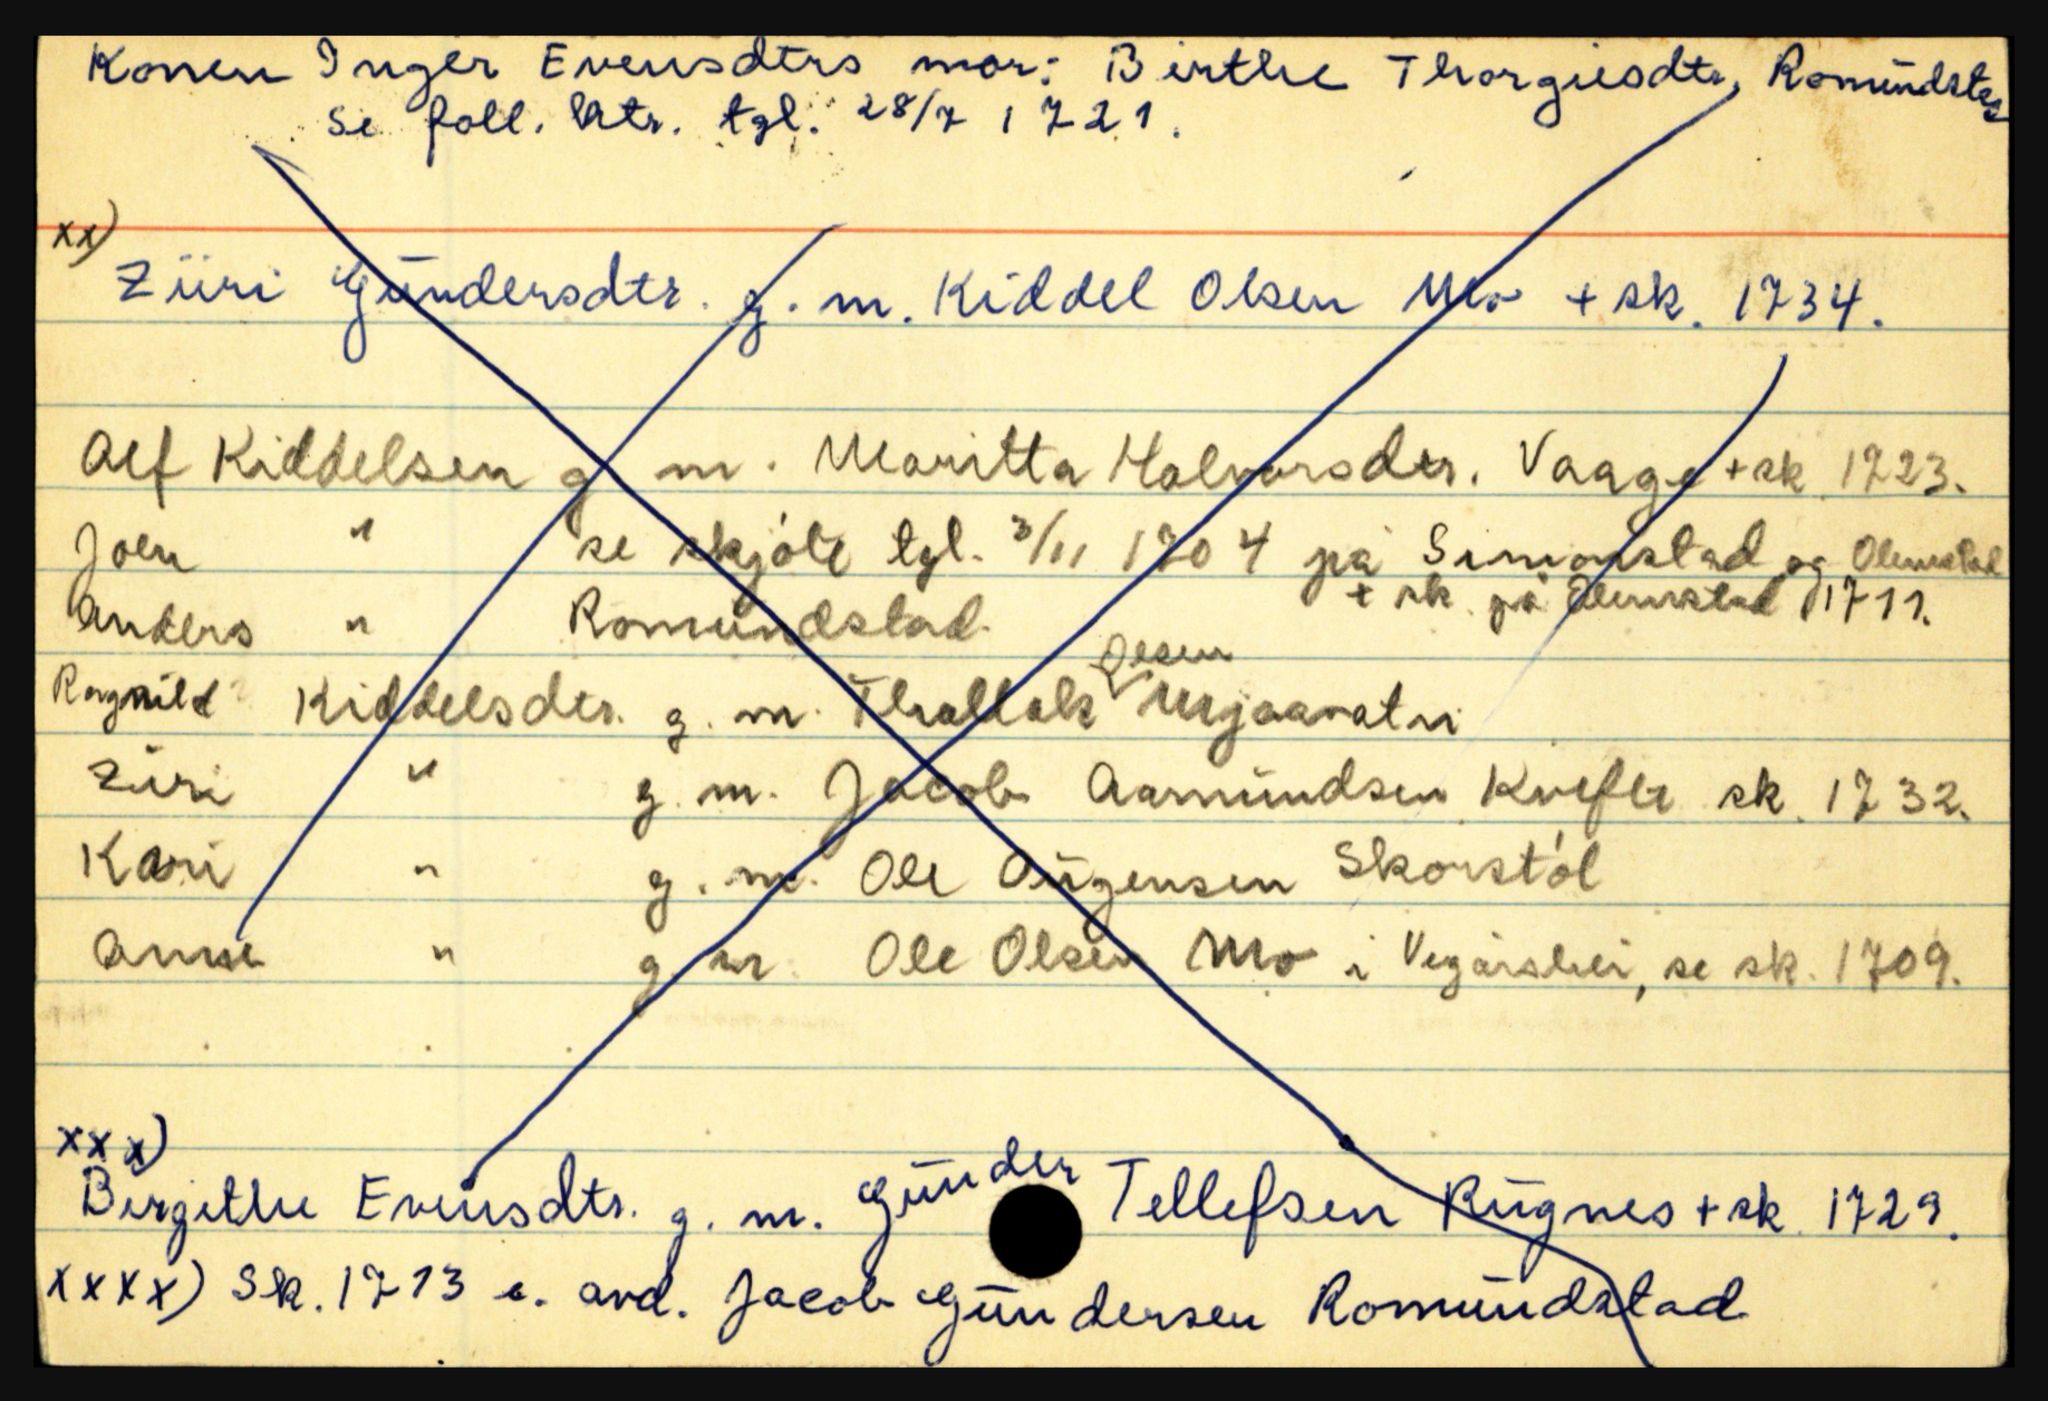 Konen Inger Evensdtrs mor: Birthe Thorgiesdtr, Romündstad
se foll. btr. tgl. 28/7 1721.
xx)
Züri Gündersdtr. g. m. Kiddel Olsen Mo + sk. 1734.
Alf Kiddelsen g. m. Maritta Halvorsdtr. Vaage + sk. 1723.
Joen " se skjöte tgl. 3/11 1704 på Simonstad og Olimstad
+ sk. på Olimstad 1711.
Anders " Romündstad
Olsen
Ragnild Kiddelsdtr. g. m. Thallak Mjaavatn
Züri " g. m. Jacob Aamündsen Kvefle sk. 1732.
Kari " g. m. Ole Aügensen Skorstöl
Anne " g. m. Ole Olsen Mo i Vegårshei, se sk. 1709.
xxx)
Birgithe Evensdtr. g. m. Günder Tellefsen Rügnes + sk. 1729.
xxxx) Sk. 1713 e. avd. Jacob Gündersen Romündstad